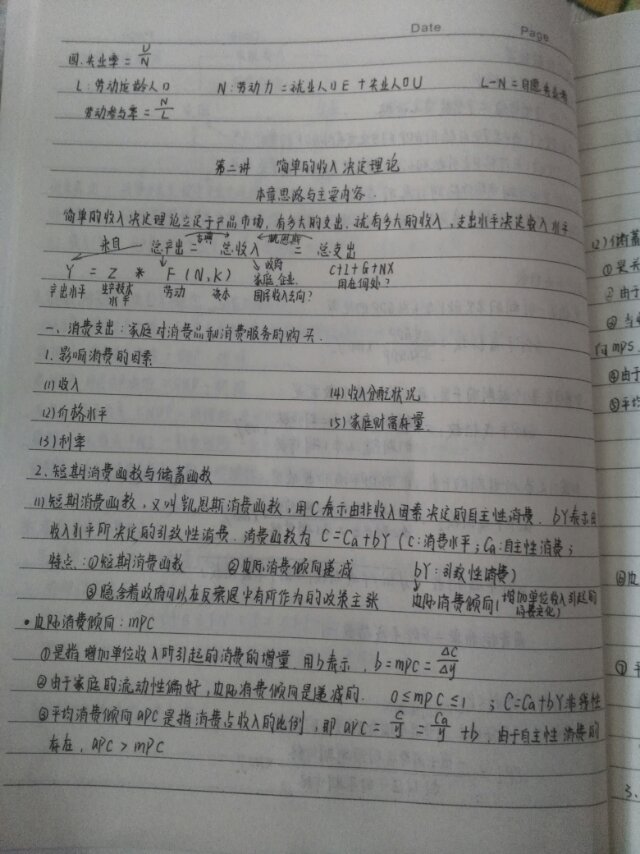 Date Page
四. 失业率 = U/N
L: 劳动适龄人口 N: 劳动力 = 就业人口E + 失业人口U L-N = 自愿失业者
劳动参与率 = N/L
第二讲 简单的收入决定理论
本章思路与主要内容.
简单的收入决定理论立足于产品市场, 有多大的支出, 就有多大的收入, 支出水平决定收入水平
来自 古典 凯恩斯
总产出 = 总收入 = 总支出
Y = Z * F (N, K) 政府 家庭 企业 C+I+G+NX
产出水平 生产技术水平 劳动 资本 国库收入去向? 用在何处?
一、消费支出: 家庭对消费品和消费服务的购买.
1. 影响消费的因素
(1) 收入 (4) 收入分配状况
(2) 价格水平 (5) 家庭财富存量
(3) 利率
2. 短期消费函数与储蓄函数
(1) 短期消费函数, 又叫凯恩斯消费函数, 用C表示由非收入因素决定的自主性消费. bY表示由
收入水平所决定的引致性消费. 消费函数为 C=Ca+bY (C: 消费水平; Ca: 自主性消费;
特点: ①短期消费函数 ②边际消费倾向递减 bY: 引致性消费)
③隐含着政府可以在反衰退中有所作为的政策主张 边际消费倾向(增加单位收入引起的消费变化)
• 边际消费倾向: mpc
①是指增加单位收入所引起的消费的增量. 用b表示, b = mpc = ΔC/Δy
②由于家庭的流动性偏好, 边际消费倾向是递减的. 0≤mpc≤1 ; C=Ca+bY非线性
③平均消费倾向apc是指消费占收入的比例, 即 apc = C/y = Ca/y + b. 由于自主性消费的
存在, apc > mpc
(2) 储蓄
②由于
④由于
⑤平均